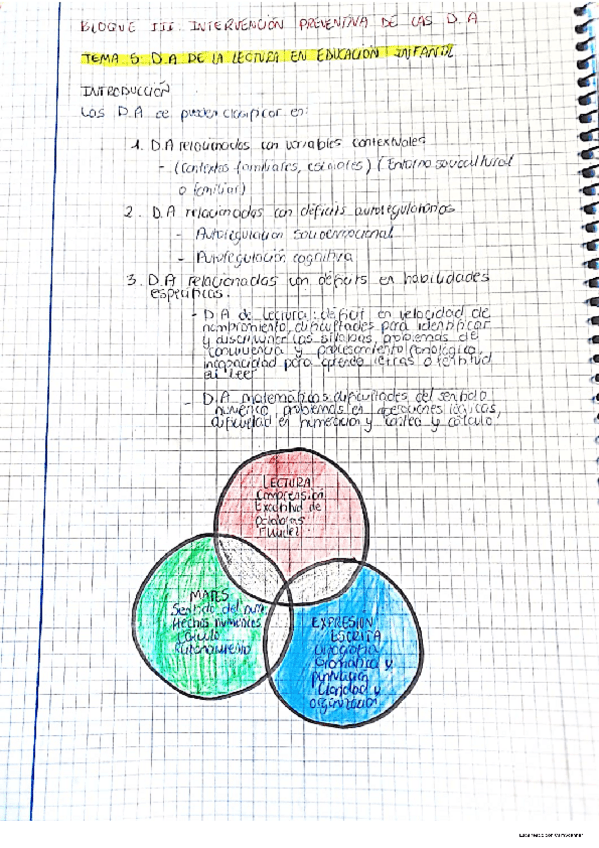 BLOQUE III. INTERVENCIÓN PREVENTIVA DE LAS D.A
TEMA 5: D.A DE LA LECTURA EN EDUCACIÓN INFANTIL
INTRODUCCIÓN
Las D.A se pueden clasificar en:
1. D.A relacionadas con variables contextuales
- (Contextos familiares, escolares) (Entorno sociocultural
o familiar)
2. D.A relacionadas con déficits autorregulatorios
- Autorregulación socioemocional
- Autorregulación cognitiva
3. D.A relacionadas con déficits en habilidades
específicas:
- D.A de Lectura: déficit en velocidad de
nombramiento, dificultades para identificar
y discriminar las sílabas, problemas de
conciencia y procesamiento fonológico,
incapacidad para aprender letras o lentitud
al leer
- D.A matemáticas: dificultades del sentido
numérico, problemas en operaciones lógicas,
dificultad en numeración y conteo y cálculo.
LECTURA
Comprensión
Exactitud de
palabras
Fluidez
MATES
Sentido del num
Hechos numéricos
Cálculo
Razonamiento
EXPRESIÓN
ESCRITA
Ortografía
Gramática y
puntuación
Claridad y
organización